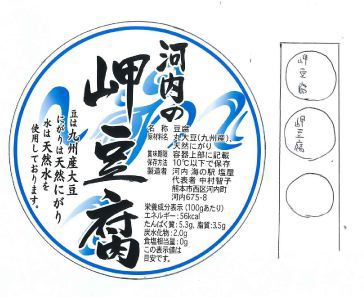 河内の
岬豆腐
豆は九州産大豆
にがりは天然にがり
水は天然水を
使用しております。
名称 豆腐
原材料名 丸大豆(九州産)、
天然にがり
賞味期限 容器上部に記載
保存方法 10℃以下で保存
製造者 河内 海の駅 塩屋
代表者 中村智子
熊本市西区河内町
河内675-8
栄養成分表示(100gあたり)
エネルギー:56kcal
たんぱく質:5.3g、脂質:3.5g
炭水化物:2.0g
食塩相当量:0g
この表示値は
目安です。
岬豆腐
岬豆腐